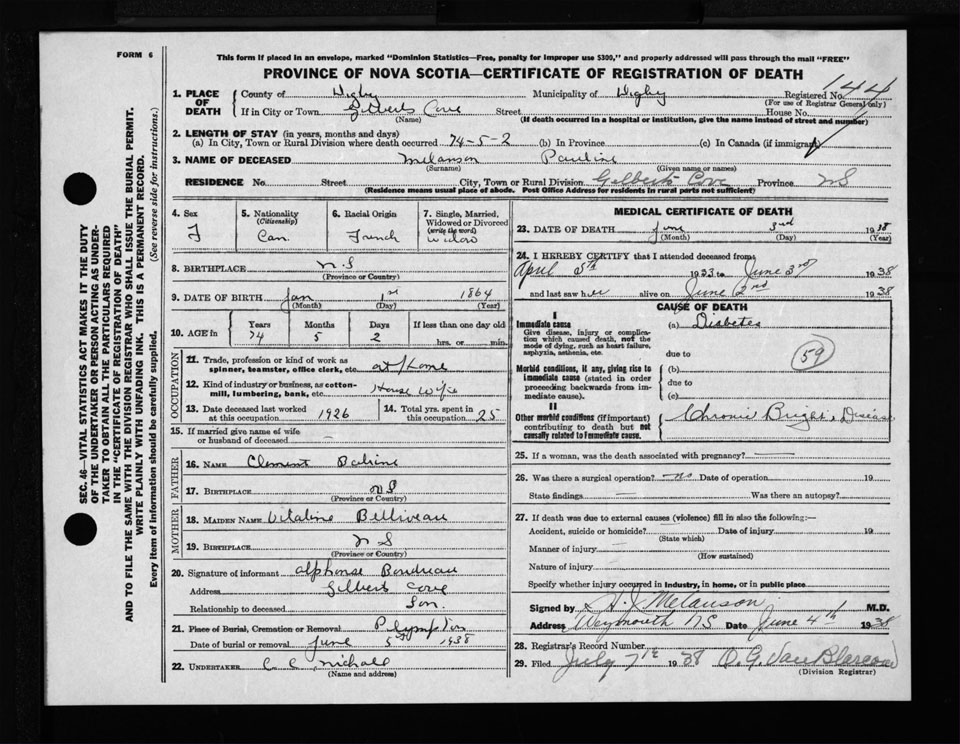 FORM 6
This form if placed in an envelope, marked "Dominion Statistics—Free, penalty for improper use $300," and properly addressed will pass through the mail "FREE"
PROVINCE OF NOVA SCOTIA—CERTIFICATE OF REGISTRATION OF DEATH
SEC. 46—VITAL STATISTICS ACT MAKES IT THE DUTY
OF THE UNDERTAKER OR PERSON ACTING AS UNDER-
TAKER TO OBTAIN ALL THE PARTICULARS REQUIRED
IN THE "CERTIFICATE OF REGISTRATION OF DEATH"
AND TO FILE THE SAME WITH THE DIVISION REGISTRAR WHO SHALL ISSUE THE BURIAL PERMIT.
WRITE PLAINLY WITH UNFADING INK. THIS IS A PERMANENT RECORD.
Every item of information should be carefully supplied. (See reverse side for instructions.)
1. PLACE OF DEATH County of Digby Municipality of Digby Registered No. 144
(For use of Registrar General only)
If in City or Town Gilberts Cove Street House No.
(Name) (If death occurred in a hospital or institution, give the name instead of street and number)
2. LENGTH OF STAY (in years, months and days)
(a) In City, Town or Rural Division where death occurred 74-5-2 (b) In Province (c) In Canada (if immigrant)
3. NAME OF DECEASED Melanson Pauline
(Surname) (Given name or names)
RESIDENCE No. Street City, Town or Rural Division Gilberts Cove Province NS
(Residence means usual place of abode. Post Office Address for residents in rural parts not sufficient)
4. Sex F
5. Nationality (Citizenship) Can.
6. Racial Origin French
7. Single, Married, Widowed or Divorced (write the word) widow
8. BIRTHPLACE N.S
(Province or Country)
9. DATE OF BIRTH Jan 1st 1864
(Month) (Day) (Year)
10. AGE IN Years 74 Months 5 Days 2 If less than one day old hrs. or min.
OCCUPATION
11. Trade, profession or kind of work as spinner, teamster, office clerk, etc. at Home
12. Kind of industry or business, as cotton-mill, lumbering, bank, etc. House wife
13. Date deceased last worked at this occupation 1926
14. Total yrs. spent in this occupation 25
15. If married give name of wife or husband of deceased —
FATHER
16. NAME Clement
17. BIRTHPLACE NS
(Province or Country)
MOTHER
18. MAIDEN NAME Vitaline Belliveau
19. BIRTHPLACE N S
(Province or Country)
20. Signature of informant Alphonse Boudreau
Address Gilberts Cove
Relationship to deceased Son.
21. Place of Burial, Cremation or Removal Plympton
Date of burial or removal June 5th 1938
22. UNDERTAKER C. C.
(Name and address)
MEDICAL CERTIFICATE OF DEATH
23. DATE OF DEATH June 3rd 1938
(Month) (Day) (Year)
24. I HEREBY CERTIFY that I attended deceased from
April 5th 1933 to June 3rd 1938
and last saw her alive on June 2nd 1938
CAUSE OF DEATH
I
Immediate cause (a) Diabetes
Give disease, injury or complication which caused death, not the mode of dying, such as heart failure, asphyxia, asthenia, etc.
due to
59
Morbid conditions, if any, giving rise to immediate cause (stated in order proceeding backwards from immediate cause).
(b)
due to
(c)
II
Other morbid conditions (if important) contributing to death but not causally related to immediate cause.
Chronic Brights Disease
25. If a woman, was the death associated with pregnancy? —
26. Was there a surgical operation? — no Date of operation 19
State findings Was there an autopsy?
27. If death was due to external causes (violence) fill in also the following:—
Accident, suicide or homicide? Date of injury 19
(State which)
Manner of injury
(How sustained)
Nature of injury
Specify whether injury occurred in industry, in home, or in public place
Signed by H. J. Melanson M.D.
Address Weymouth NS Date June 4th 1938
28. Registrar's Record Number
29. Filed July 7th 1938 O. G. Van Blarcom
(Division Registrar)